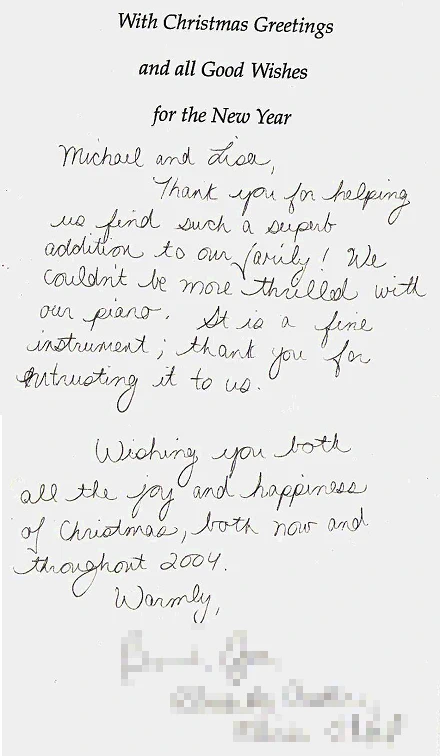 With Christmas Greetings
and all Good Wishes
for the New Year
Michael and Lisa,
Thank you for helping
us find such a superb
addition to our family! We
couldn't be more thrilled with
our piano. It is a fine
instrument; thank you for
entrusting it to us.
Wishing you both
all the joy and happiness
of Christmas, both now and
throughout 2004.
Warmly,